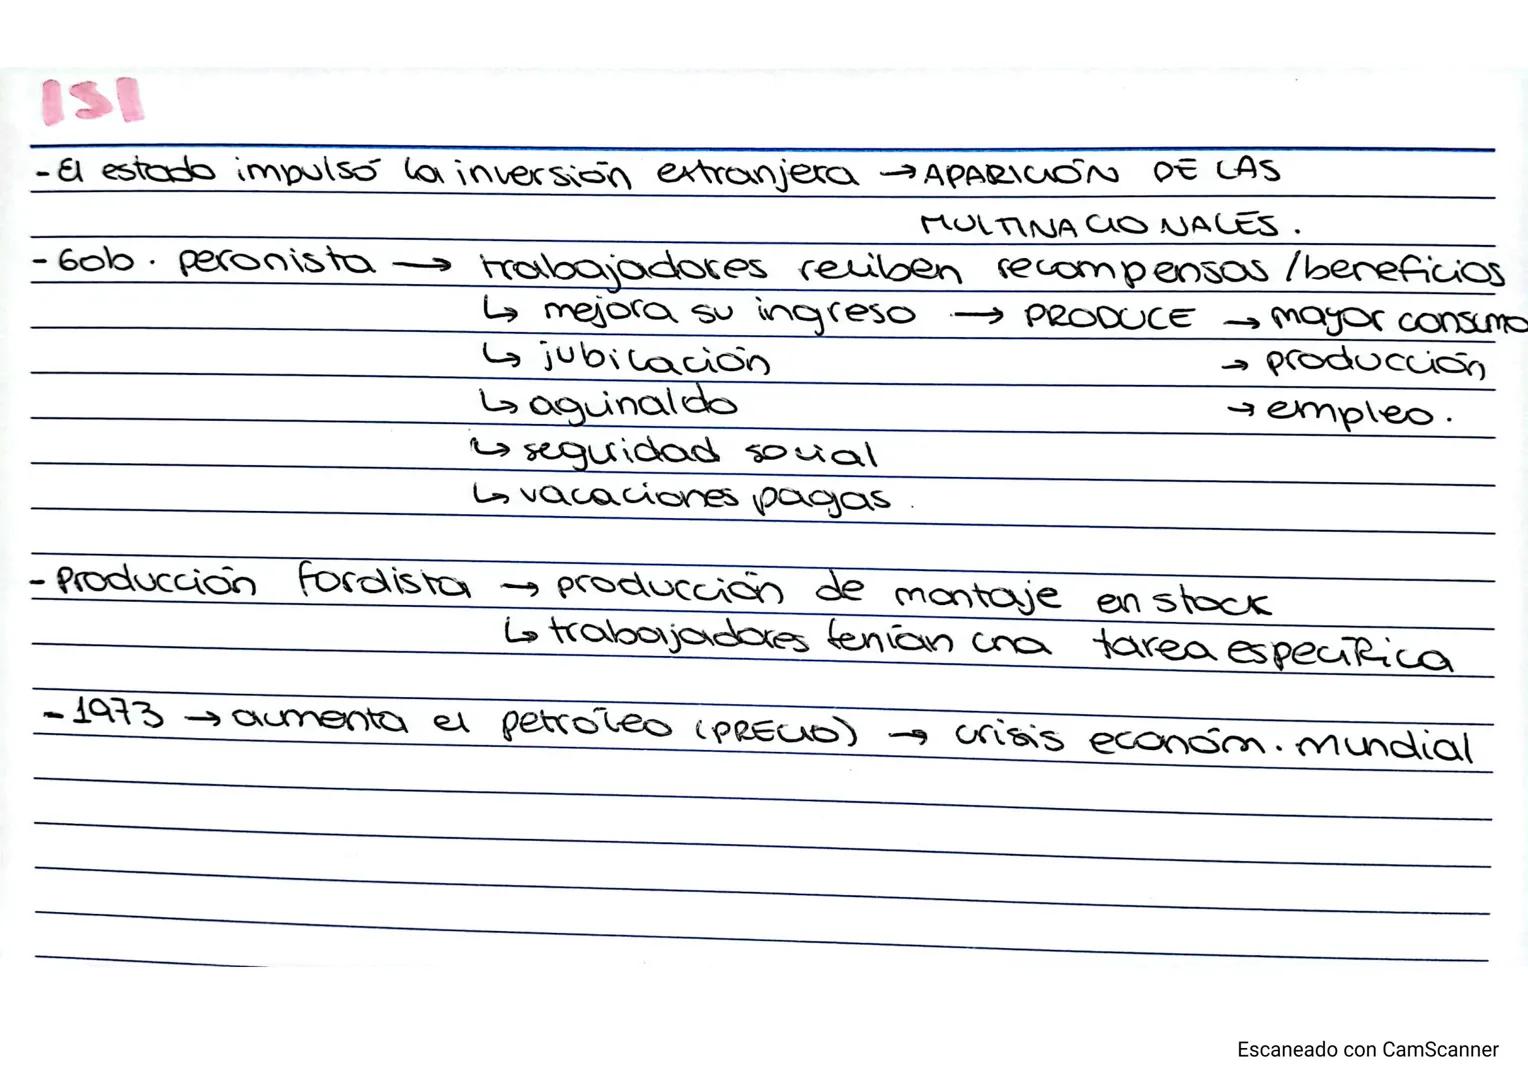 ISI
- El estado impulsó la inversión extranjera → APARICIÓN DE LAS
MULTINACIONALES.
- Gob. peronista → trabajadores reciben recompensas / beneficios
↳ mejora su ingreso → PRODUCE → mayor consumo
↳ jubilación → producción
↳ aguinaldo → empleo.
↳ seguridad social
↳ vacaciones pagas.
- Producción fordista → producción de montaje en stock
↳ trabajadores tenían una tarea específica
- 1973 → aumenta el petróleo (PRECIO) → crisis económ. mundial
Escaneado con CamScanner